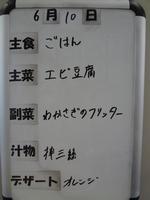 6月10日
主食 ごはん
主菜 エビ豆腐
副菜 わかさぎのフリッター
汁物 神三絲
デザート オレンジ